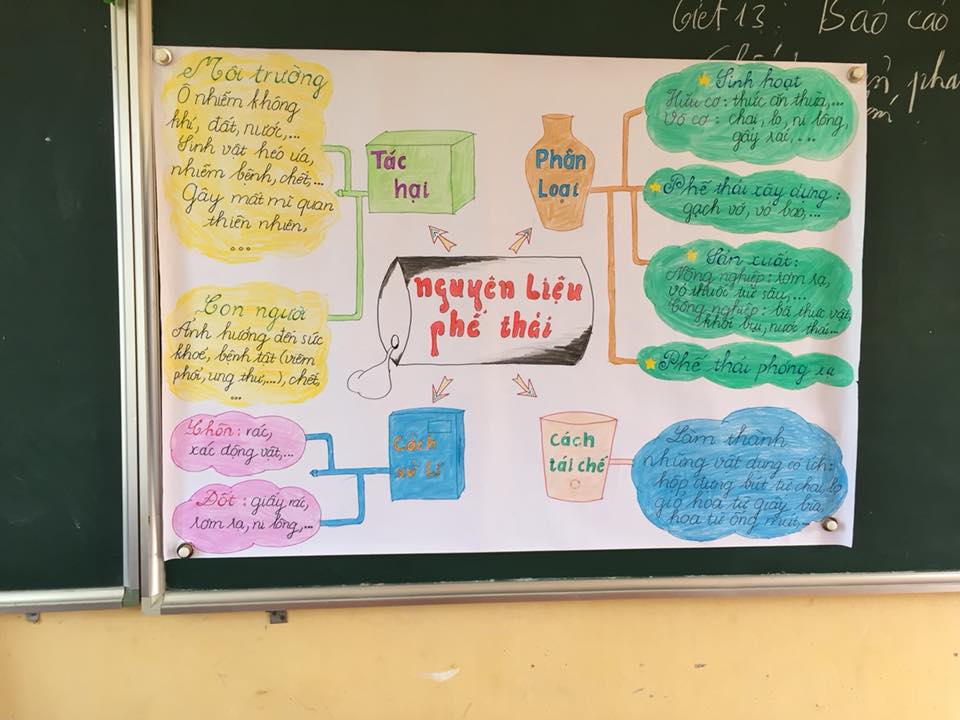 Tiết 13: Báo cáo
nguyên liệu
phế thải
Tác
hại
Môi trường
Ô nhiễm không
khí, đất, nước,...
Sinh vật héo úa,
nhiễm bệnh, chết,...
Gây mất mĩ quan
thiên nhiên,
...
Con người
Ảnh hưởng đến sức
khoẻ, bệnh tật (viêm
phổi, ung thư,...), chết,
...
Phân
Loại
Sinh hoạt
Hữu cơ: thức ăn thừa,...
Vô cơ: chai, lọ, ni lông,
gây rái,...
Phế thải xây dựng:
gạch vỡ, vỏ bao,...
Sản xuất:
Nông nghiệp: rơm rạ,
vỏ thuốc trừ sâu,...
Công nghiệp: bã thực vật,
khói bụi, nước thải...
Phế thải phóng xạ
Cách
xử lí
Chôn: rác,
xác động vật,...
Đốt: giấy rác,
rơm rạ, ni lông,...
Cách
tái chế
Làm thành
những vật dụng có ích:
hộp đựng bút từ chai, lọ
giỏ hoa từ giấy bìa,
hoa từ ống mút,...